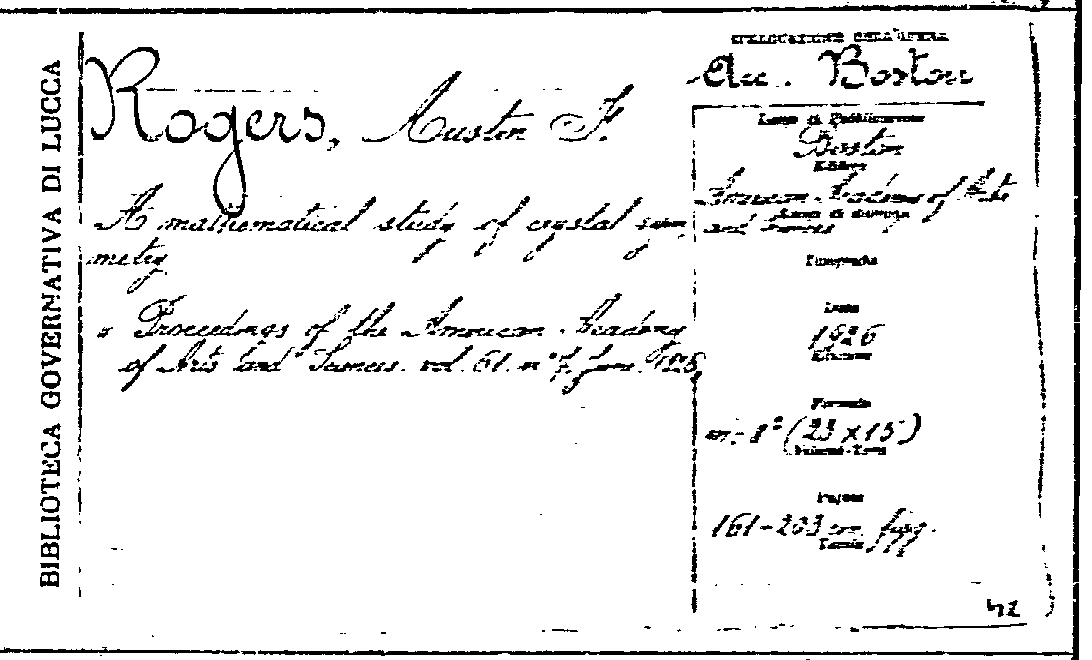 BIBLIOTECA GOVERNATIVA DI LUCCA
Rogers, Austin F.
A mathematical study of crystal sym
metry
Proceedings of the American Academy
of Arts and Sciences. vol. 61. n° 7, June 1926,
COLLOCAZIONE DELL'OPERA
Boston
Luogo di Pubblicazione
Boston
Editore
American Academy of Arts
Luogo di stampa
and Sciences
Tipografo
Data
1926
Edizione
Formato
in-8° (23x15)
Volumi-Tomi
Pagine
161-203 con figg.
Tavole